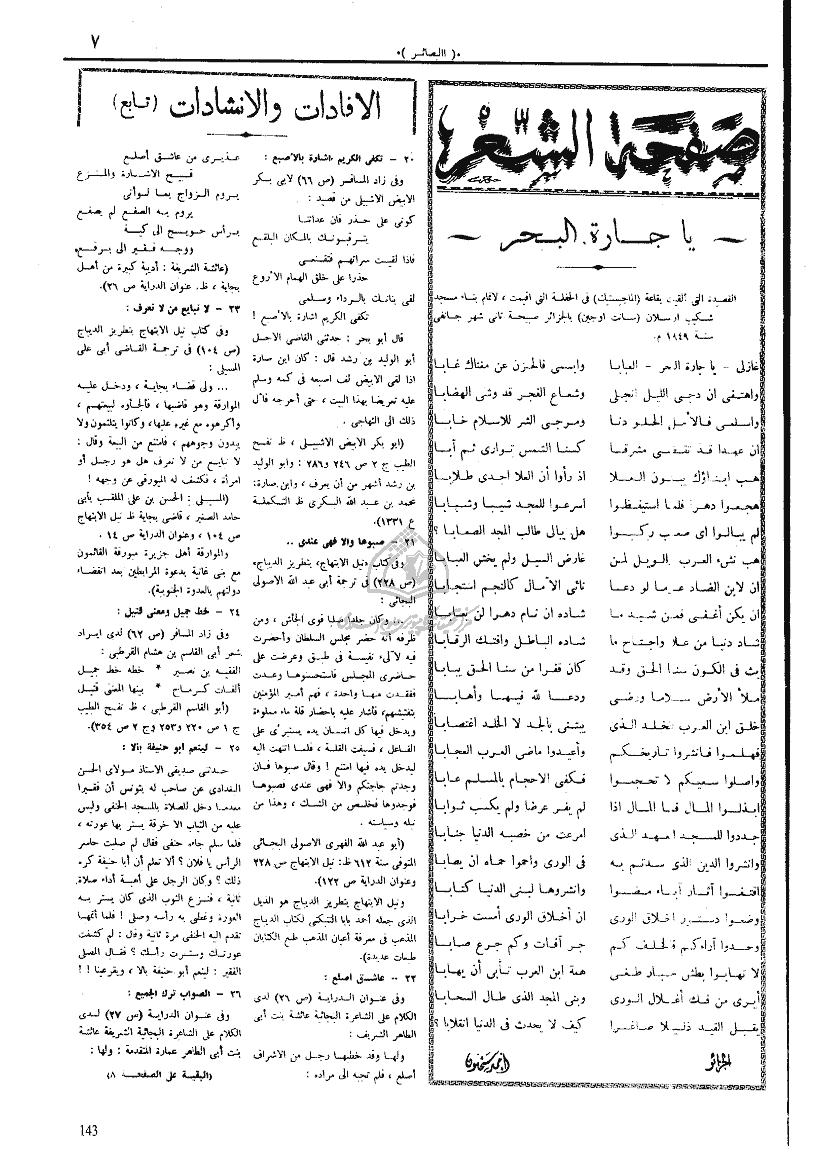 ٧
٠( البصائر )٠
صفحة الشعر
— يا جارة البحر —
القصيدة التي ألقيت بقاعة (الماجيستيك) في الحفلة التي اقيمت ، لاتمام بناء مسجد
شكيب ارسلان (سانت اوجين) بالجزائر صبيحة ثاني شهر جانفي
سنة ١٩٤٩ م.
غازلي - يا جارة البحر - العبابا وابسمي فالحزن عن مغناك غابا
واهتفي ان دجى الليل انجلى وشعاع الفجر قد وشى الهضابا
واسلمي فالأمل الحلو دنا ومرجي الشر للاسلام خابا
ان عهدا قد تقضى مشرقا كسنا الشمس توارى ثم آبا
هب ابناؤك يبنون العلا اذ رأوا أن العلا اجدى طلابا
هجعوا دهرا فلما استيقظوا اسرعوا للمجد شيبا وشبابا
لم يبالوا اى صعب ركبوا هل يبالي طالب المجد الصعابا ؟
هب نشء العرب الويل لمن عارض السيل ولم يخش العبابا
ان لابن الضاد عزما لو دعا نائي الآمال كالنجم استجابا
ان يكن أغفى فمن شيد ما شاده ان نام دهرا لن يعابا
شاد دنيا من علا واجتاح ما شاده الباطل وافتك الرقابا
بث في الكون سنا الحق وقد كان قفرا من سنا الحق يبابا
ملأ الأرض سلاما ورضى ودعا لله فيها وأهابا
خلق ابن العرب الخلد الذى يبتنى بالجد لا الخلد اغتصابا
فهلموا فانشروا تاريخكم وأعيدوا ماضي العرب العجابا
واصلوا سعيكم لا تحجموا فكفى الاحجام بالمسلم عابا
ابذلوا المال فما المال اذا لم يفر عرضا ولم يكسب ثوابا
جددوا للمسجد العهد الذى امرعت من خصبه الدنيا جنابا
وانشروا الدين الذى سدتم به في الورى واحموا حماه ان يصابا
اقتفوا آثار آباء مضوا وانشروها لبنى الدنيا كتابا
وضعوا دستور اخلاق الورى ان أخلاق الورى أمست خرابا
وحدوا آراءكم فالخلف كم جر آفات وكم جرع صابا
لا تهابوا بطش جبار طغى همة ابن العرب تأبى أن يهابا
أيرى من فك أغلال الورى وبنى المجد الذى طال السحابا
يقبل القيد ذليلا صاغرا كيف لا يحدث في الدنيا انقلابا ؟
الجزائر أحمد سحنون
الافادات والانشادات (تابع)
٢٠ - تكفى الكريم اشارة بالاصبع :
وفى زاد المسافر (ص ٦٦) لابى بكر
الابيض الاشبيلى من قصيد :
كونى على حذر فان عداتنا
يترقبونك بالمكان البلقع
فاذا لقيت سراتهم فتقنعى
حذرا على خلق الهمام الأروع
لقى بنانك بالرداء وسلمى
تكفى الكريم اشارة بالأصبع !
قال أبو بحر : حدثنى القاضى الاجل
أبو الوليد بن رشد قال : كان ابن صارة
اذا لقى الابيض لف اصبعه فى كمه وسلم
عليه تعريضا بهذا البيت ، حتى أحرجه فآل
ذلك الى التهاجى .
(ابو بكر الابيض الاشبيلى ، ظ نفح
الطيب ج ٢ ص ٢٤٦ و٢٨٦ : وابو الوليد
بن رشد أشهر من أن يعرف ، وابن صارة:
محمد بن عبد الله البكرى ظ التكملة
ع ١٣٣١).
٢١ - صبوها والا فهى عندى ..
وفى كتاب نيل الابتهاج، بتطريز الديباج،
(ص ٢٢٨) فى ترجمة أبى عبد الله الاصولى
البجائى :
... وكان جلدا صليبا قوى الجأش ، ومن
ظرفه أنه حضر مجلس السلطان وأحضرت
فيه لآلىء نفيسة فى طبق وعرضت على
حاضرى المجلس فاستحسنوها وعدت
ففقدت منها واحدة ، فهم أمير المؤمنين
بتفتيشهم، فأشار عليه باحضار قلة ماء مملوءة
ويدخل فيها كل انسان يده يستبرأ على
الفاعل ، فسيقت القلة ، فلما انتهت اليه
ليدخل يده فيها امتنع ! وقال صبوها فان
وجدتم حاجتكم والا فهى عندى فصبوها
فوجدوها فخلص من الشك ، وهذا من
نبله وسياسته .
(أبو عبد الله الفهرى الاصولى البجائى
المتوفى سنة ٦١٢ ظ: نيل الابتهاج ص ٢٢٨
وعنوان الدراية ص ١٢٢).
ونيل الابتهاج بتطريز الديباج هو الذيل
الذى جعله أحمد بابا التنبكتى لكتاب الديباج
المذهب فى معرفة أعيان المذهب طبع الكتابان
طبعات عديدة).
٢٢ - عاشق اصلع :
وفى عنوان الدراية (ص ٢٦) لدى
الكلام على الشاعرة البجائية عائشة بنت أبى
الطاهر الشريف :
ولها وقد خطبها رجل من الاشراف
أصلع ، فلم تجبه الى مراده :
عذيرى من عاشق أصلع
قبيح الاشارة والمنزع
يروم الزواج بما لو أتى
يروم به الصفع لم يصفع
برأس حويج الى كية
ووجه فقير الى برقع
(عائشة الشريفة : أديبة كبيرة من أهل
بجاية ، ظ. عنوان الدراية ص ٢٦).
٢٣ - لا نبايع من لا نعرف :
وفى كتاب نيل الابتهاج بتطريز الديباج
(ص ١٠٤) فى ترجمة القاضى أبى على
المسيلى :
... ولى قضاء بجاية ، ودخل عليه
الموارقة وهو قاضيها ، فالجأوه لبيعتهم ،
وأكرهوه مع غيره عليها، وكانوا يتلثمون ولا
يبدون وجوههم ، فامتنع من البيعة وقال :
لا نبايع من لا نعرف هل هو رجل أو
امرأة ، فكشف له الميورقى عن وجهه !
(المسيلى : الحسن بن على الملقب بأبى
حامد الصغير ، قاضى بجاية ظ نيل الابتهاج
ص ١٠٤ ، وعنوان الدراية ص ١٤ .
والموارقة أهل جزيرة ميورقة القائمون
مع بنى غانية بدعوة المرابطين بعد انقضاء
دولتهم بالعدوة الجنوبية).
٢٤ - خط جميل ومعنى قتيل :
وفى زاد المسافر (ص ٦٧) لدى ايراد
شعر أبى القاسم بن هشام القرطبى :
الفقيه بن نصير * خطه خط جميل
ألفات كرماح * بينها المعنى قتيل
(أبو القاسم القرطبى ، ظ نفح الطيب
ج ١ ص ٢٢٠ و٢٥٣ وج ٢ ص ٣٥٤).
٢٥ - لينعم ابو حنيفة بالا :
حدثنى صديقى الاستاذ مولاى الحسن
البغدادى عن صاحب له بتونس أن فقيرا
معدما دخل للصلاة بالمسجد الحنفى وليس
عليه من الثياب الا خرقة يستر بها عورته ،
فلما سلم جاءه حنفى فقال لم صليت حاسر
الرأس يا فلان ؟ ألا تعلم أن أبا حنيفة كره
ذلك ؟ وكان الرجل على أهبة أداء صلاة
ثانية ، فنزع الثوب الذى كان يستر به
العورة وغطى به رأسه وصلى ! فلما أتمها
تقدم اليه الحنفى مرة ثانية وقال : لم كشفت
عورتك وسترت رأك ؟ فقال المصلى
الفقير : لينعم أبو حنيفة بالا ، ويقر عينا ! !
٢٦ - الصواب ترك الجميع :
وفى عنوان الدراية (ص ٢٧) لدى
الكلام على الشاعرة البجائية الشريفة عائشة
بنت أبى الطاهر عمارة المتقدمة : ولها :
(البقية على الصفحة ٨)
143